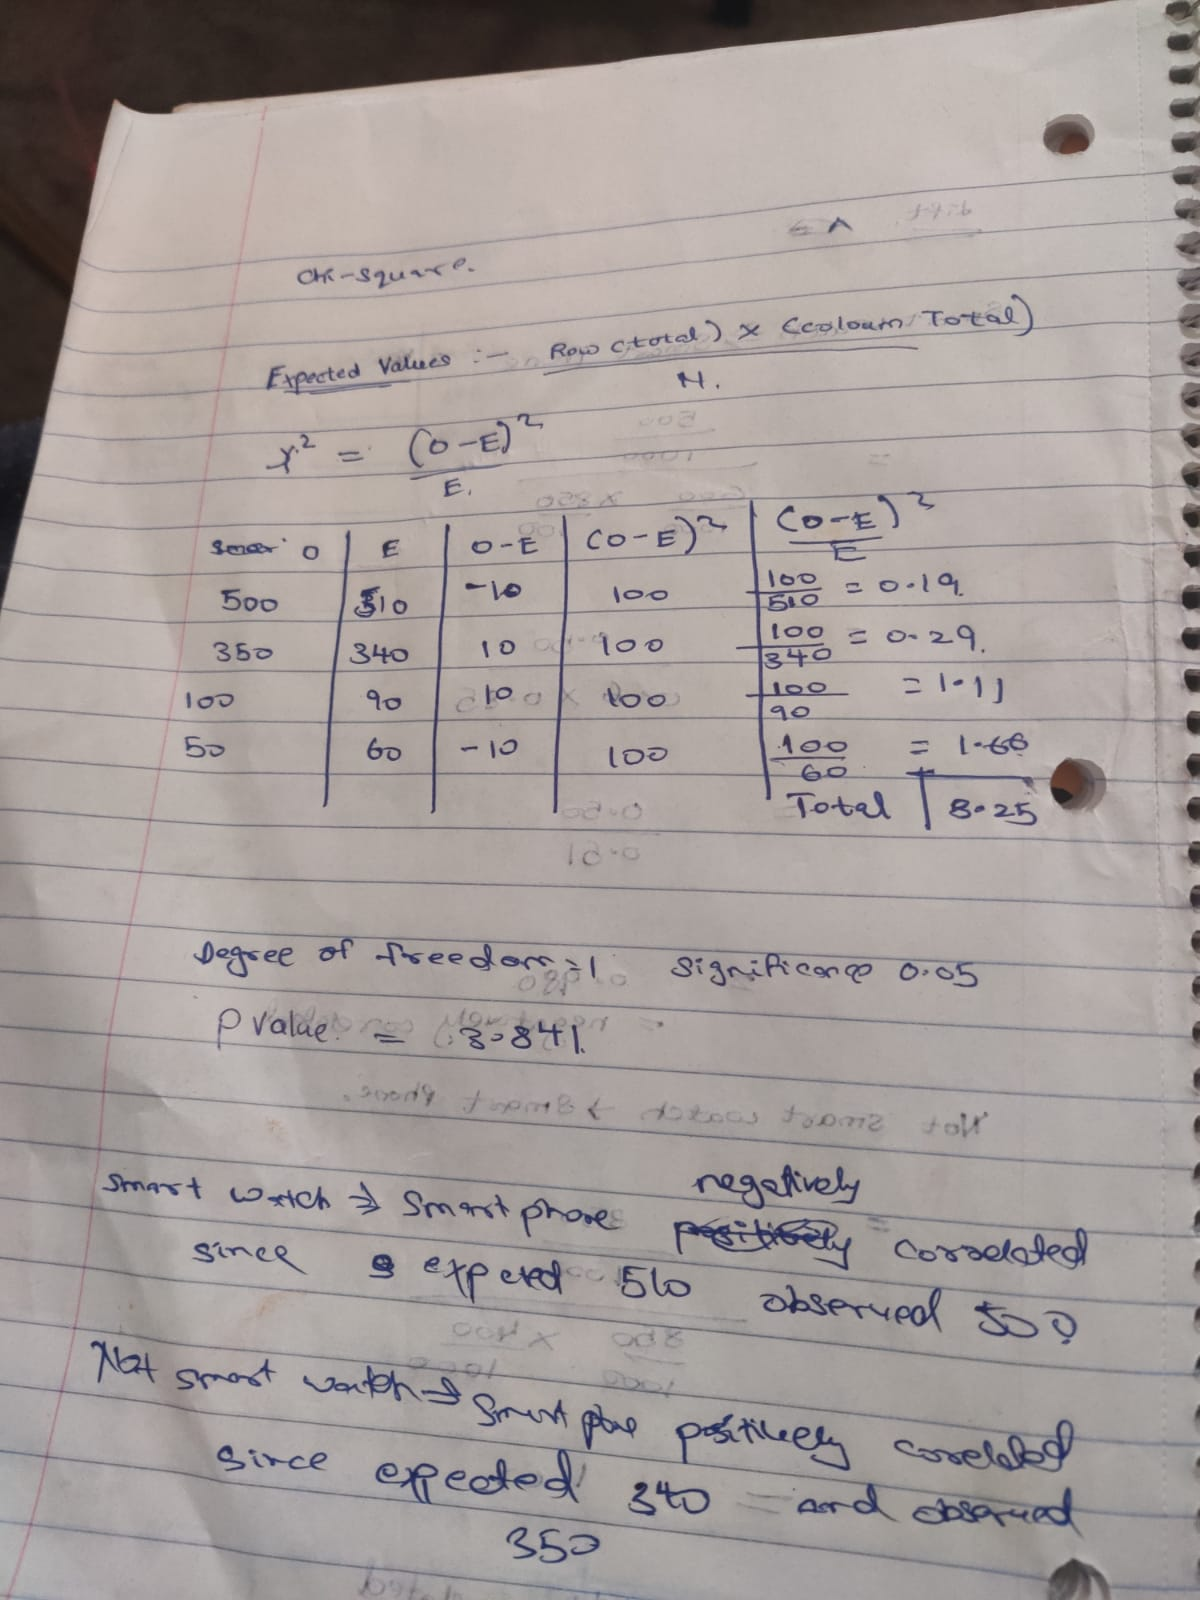 Chi-square.
Expected Values :- Row (total) x (coloum Total)
N.
x² = (O-E)²
E.
O | E | O-E | (O-E)² | (O-E)²
E
500 | 510 | -10 | 100 | 100/510 = 0.19
350 | 340 | 10 | 100 | 100/340 = 0.29.
100 | 90 | 10 | 100 | 100/90 = 1.11
50 | 60 | -10 | 100 | 100/60 = 1.66
Total | 3.25
Degree of freedom = 1 Significance 0.05
P value = 3.841.
negatively
Smart watch → Smart phone positively correlated
since expected 510 observed 500
Not smart watch → Smart phone positively correlated
since expected 340 and observed
350